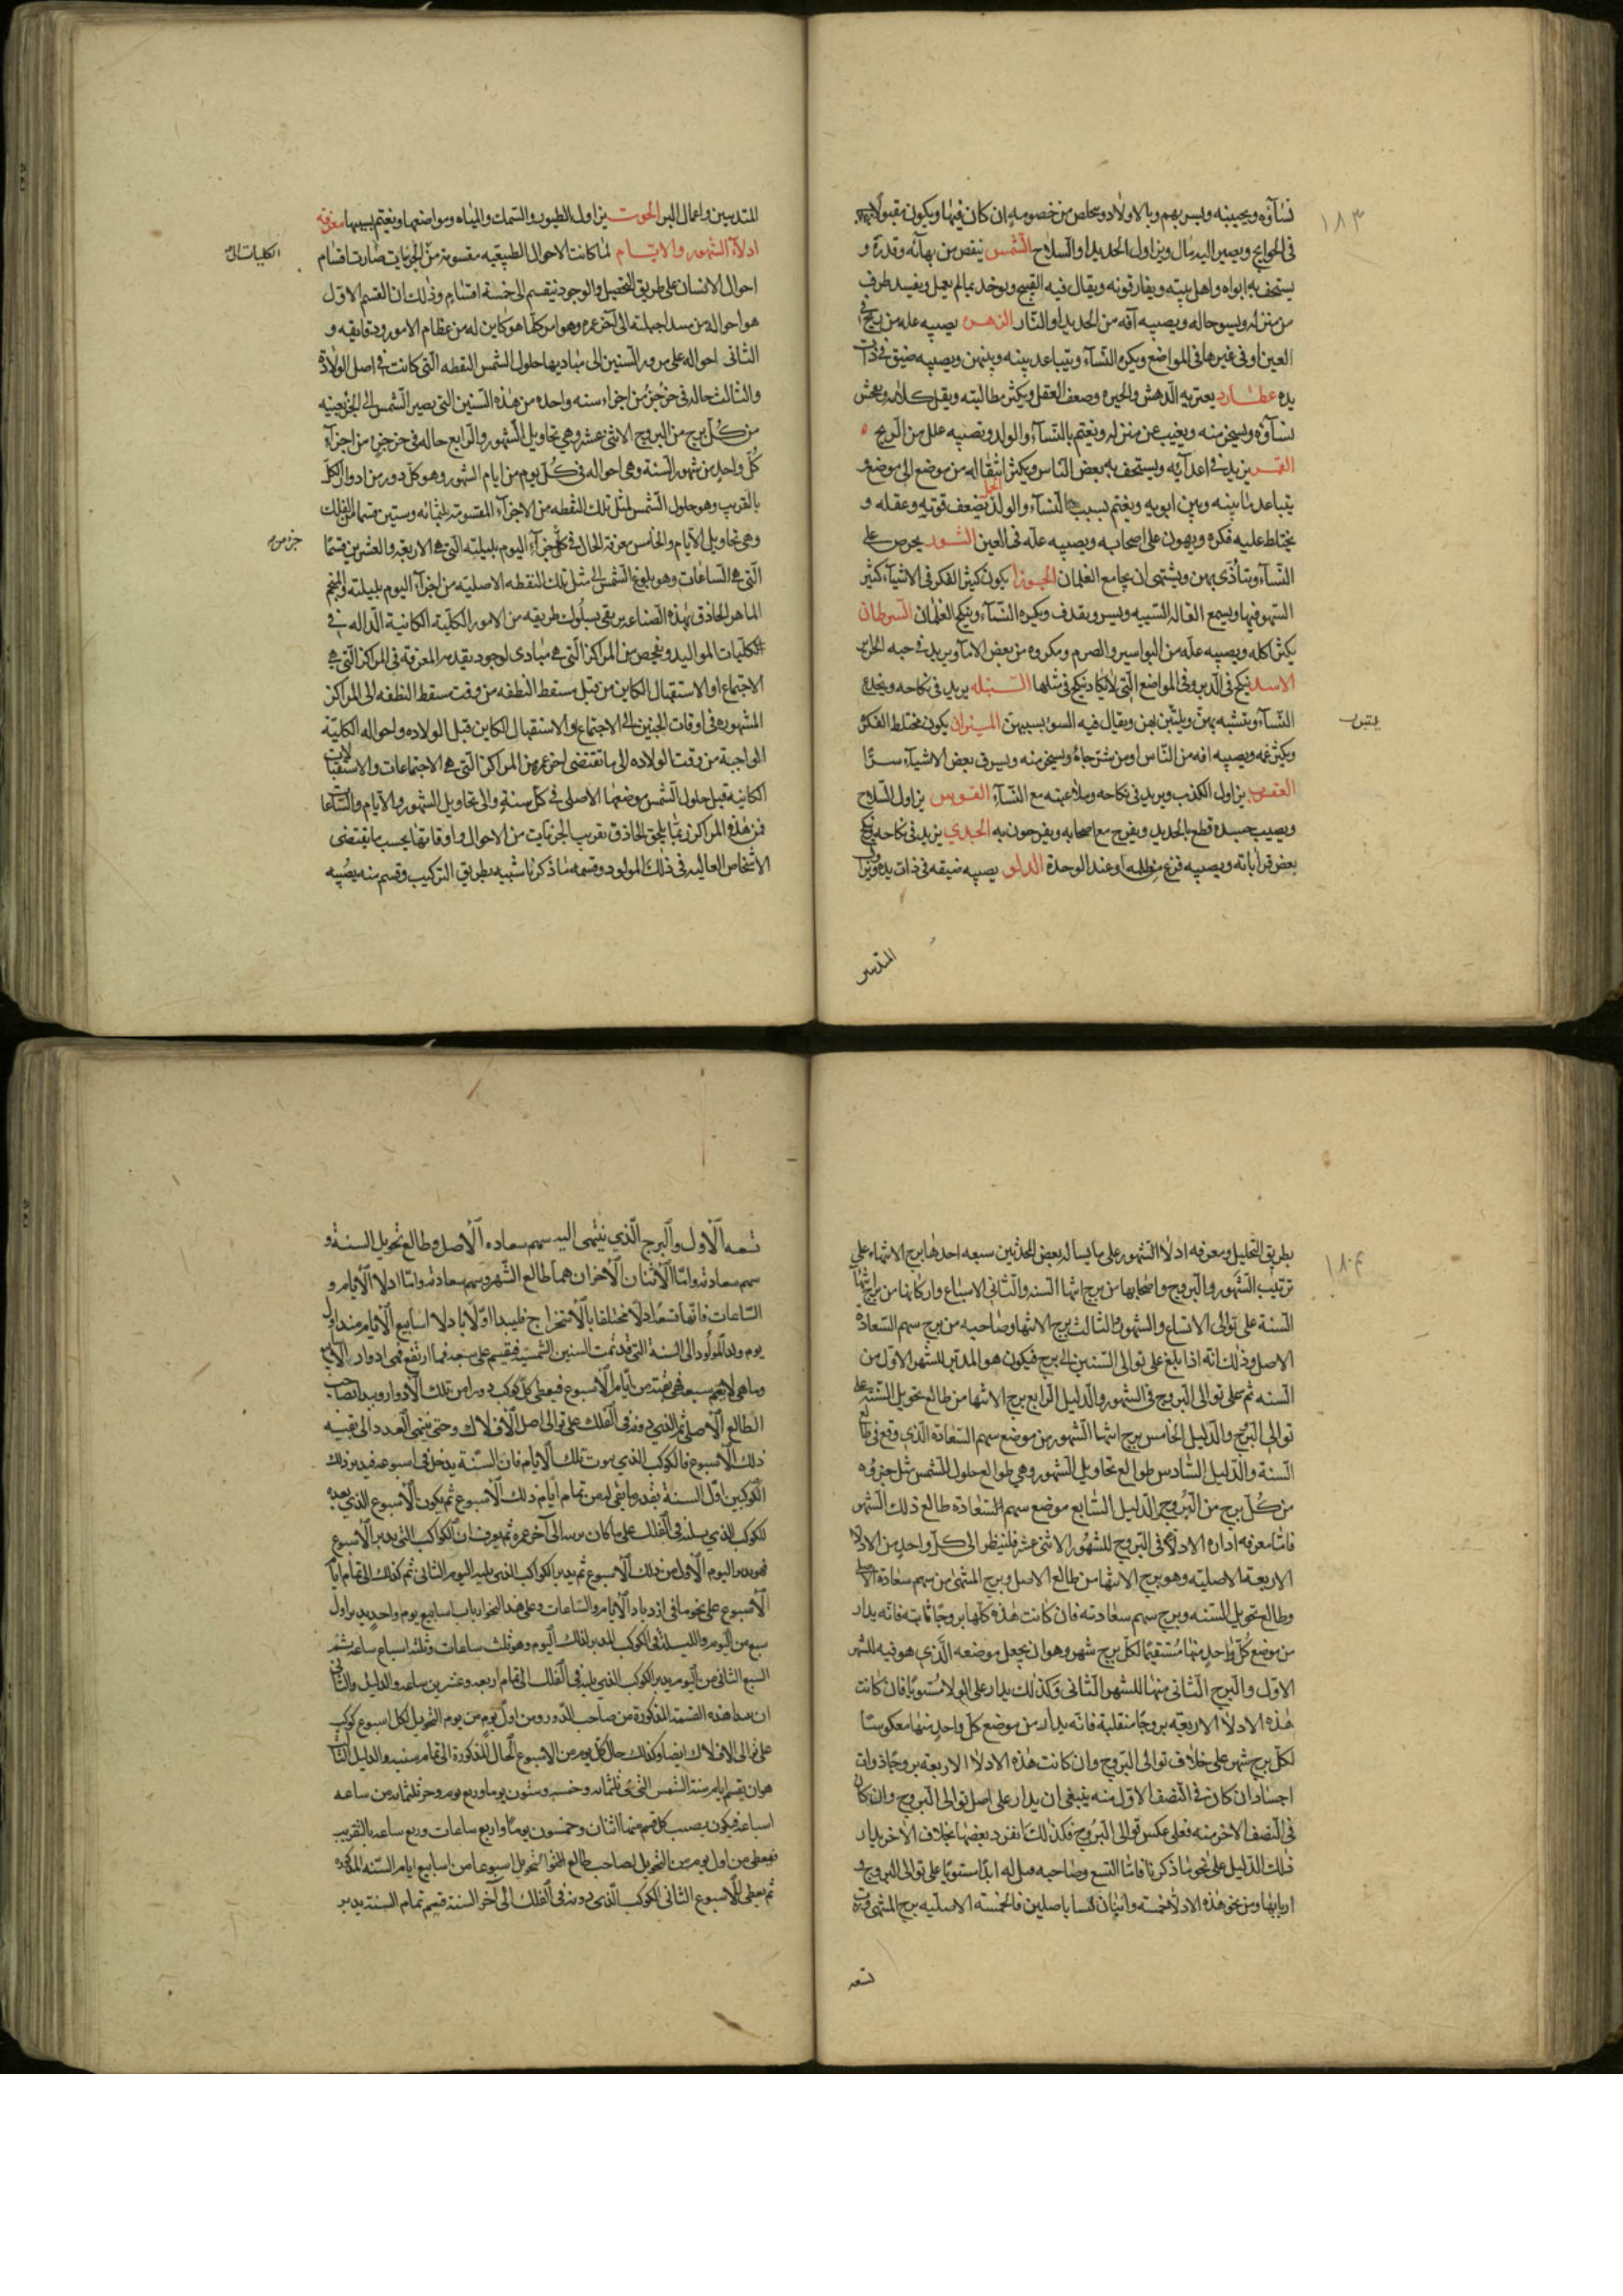 ١٨٣
نساؤه ويحببنه ويسر بهم وبالاولاد ويتخلص من خصومه ان كان فيها ويكون مقبولا
فى الحوايج ويصير اليه مال ويزاول الحديد او السلاح الشمس ينقص من بهائه وقدره و
يستخف به ابواه واهل بيته ويفارقونه ويقال فيه القبيح ويوخذ بما لم يعمل ويفسد طرف
من منزله ويسو حاله ويصيبه آفه من الحديد او النار الزهره يصيبه عله من ريح فى
العين او فى غيرها فى المواضع ويكره النسآء ويتباعد بينه وبينهن ويصيبه ضيق فى ذات
يده عطارد يعتريه الدهش والحيره وضعف العقل ويكثر مطالبته ويقل كلامه ويغش
نساؤه ويسخر منه ويغيب عن منزله ويغتم بالنسآء والولد وتصيبه علل من الريح
القمر يزيد فى اعدآئه ويستخف به بعض الناس ويكثر انتقاله من موضع الى موضع و
يتباعد ما بينه وبين ابويه ويغتم بسبب النسآء والولد الحمل يضعف قوته وعقله و
يختلط عليه فكره ويهون على اصحابه ويصيبه عله فى العين الثور يحرص على
النسآء ويتأذى بهن ويشتهى ان يجامع الغلمان الجوزا يكون كثير الفكر فى الاشيآء كثير
السهو فيها ويسمع القاله السييه ويسر ويقذف ويكره النسآء وينكح الغلمان السرطان
يكثر اكله ويصيبه عله من البواسير والصرم ومكروه من بعض الامآ ويزيد فى حبه الحراير
الاسد ينكح فى الدبر وفى المواضع التى لا يكاد ينكح فى مثلها السنبله يزيد فى نكاحه ويخدع
النسآء ويتشبه بهن ويقال فيه السو بسببهن الميزان يكون مختلط الفكر
ويكثر غمه ويصيبه افه من الناس ويسخر منه ويسرق بعض الاشيآء سرا
العقرب يزاول الكذب ويزيد فى نكاحه وملاعبته مع النسآء القوس يزاول السلاح
ويصيب جسده قطع بالحديد ويفرح مع اصحابه ويفرحون به الجدي يزيد فى نكاحه وينكح
بعض قراباته ويصيبه فزع او عند الوحدة الدلو يصيبه ضيقه فى ذات يده
المتدبير
واعمال البر الحوت يزاول الطيور والسمك والمياه ومواضعها ويغتم بسببها معرفه
ادلآ الشهور والايــام لما كانت الاحوال الطبيعيه مقسومة من الجزييات صارت اقسام
الكليات الى
احوال الانسان على طريق التحصيل والوجود ينقسم الى خمسة اقسام وذلك ان القسم الاول
هو احواله من مبدا جبلته الى آخر عمره وهو امر كلما هو كاين له من عظام الامور ودقايقه و
الثانى احواله على مرور السنين الى مباديها حلول الشمس النقطه التى كانت فى اصل الولادة
والثالث حاله فى جز جز من اجزاء سنه واحده من هذه السنين التى يصير الشمس الى الجز بعينه
من كل برج من البروج الاثنى عشر وهي تحاويل الشهور والرابع حاله فى جز جز من اجزآء
كل واحد من شهور السنة وهي احواله فى كل يوم من ايام الشهور وهو كل دور من ادوار الكل
بالقريب وهو حلول الشمس لمثل تلك النقطه من الاجزآء المقسومة بثلثمائه وستين قسما للفلك
وهي تحاويل الايام والخامس معرفة الحال فى كل جز من اجزآء اليوم بليلته التى هى الاربعة والعشرين قسما
جز من
التى هى الساعات وهو بلوغ الشمس الى مثل تلك النقطه الاصليه من اجزآ اليوم بليلته والمنجم
الماهر الحاذق بهذه الصناعه يرتقى بسلوك طريقه من الامور الكلية الكاينة الداله فى
الكليات المواليد ويفحص من المراكز التى هى مبادى لوجود تقديم المعرفة فى المراكز التى هى
الاجتماع او الاستقبال الكاين من قبل مسقط النطفه من وقت سقط النطفه الى المراكز
المشهوره فى اوقات الجنين الى الاجتماع او الاستقبال الكاين قبل الولاده واحواله الكلية
الواجبة من وقت الولاده الى ما تقتضى اخر عمره من المراكز التى هى الاجتماعات والاستقبالات
الكاينه قبل حلول الشمس موضعها الاصلى فى كل سنة والى تحاويل الشهور والايام والساعات
فمن هذه المراكز ربما يلحق الحاذق تقريب الجزئيات من الاحوال واوقاتها بحسب ما يقتضى
الاشخاص العاليه فى ذلك المولود وقسمه ما ذكرنا شبيه بطريق التركيب وقسم منه يصيبه
١٨٤
بطريق التحليل ومعرفه ادلاا الشهور على ما يساله بعض المحدثين سبعه احدها برج الانتهاء على
ترتيب الشهور والبروج واصحابها من برج انتها السنه والثانى الاسباع واركانها من برج انتهآ
السنة على توالى الاتساع والشهور والثالث برج الانتها وصاحبه من برج سهم السعادة
الاصل وذلك انه اذا بلغ على توالى السنين الى برج فيكون هو المدبر للشهر الاول من
السنه ثم على توالى البروج فى الشهور والدليل الرابع برج الانتها من طالع تحويل السنة على
توالى البروج والدليل الخامس برج انتها الشهور من موضع سهم السعادة الذي وقع فى طالع
السنة والدليل السادس طوالع تحاويل الشهور وهي طوالع حلول الشمس مثل جزوه
من كل برج من البروج والدليل السابع موضع سهم السعادة طالع ذلك الشهر
فاما معرفه اداره الادلآ فى البروج للشهور الاثنى عشر فلينظر الى كل واحد من الادلا
الاربعه الاصليه وهو برج الانتها من طالع الاصل وبرج المنتهى من سهم سعادة الاصل
وطالع تحويل السنه وبرج سهم سعادته فان كانت هذه كلها بروجا ثابته فانه يدار
من موضع كل واحد منها مستقيما لكل برج شهر وهو ان يجعل موضعه الذي هو فيه للشهر
الاول والبرج الثانى منها للشهر الثانى وكذلك يدار على الولا مستويا فان كانت
هذه الادلا الاربعه بروجا منقلبة فانه يدار من موضع كل واحد منها معكوسا
لكل برج شهر على خلاف توالى البروج وان كانت هذه الادلا الاربعه بروجا ذوات
اجساد ان كان فى النصف الاول منه ينبغى ان يدار على اصل توالى البروج وان كان
فى النصف الاخر منه فعلى عكس توالى البروج فكذلك تنفرد بعضها بخلاف الاخر يدار
ذلك الدليل على نحو ما ذكرنا فاما التسع وصاحبه ابدا مستويا على توالى البروج و
اربابها ومن نحو هذه الادلا خمسة واثنان ليسا باصلين فالخمسة الاصليه برج المنتهى
تسعه
تسعه الاول والبرج الذي ينتهى اليه سهم سعاده الاصل وطالع تحويل السنة و
سهم سعادته واما الاثنان الاخران هما طالع الشهر وسهم سعادته واما ادلا الايام و
الساعات فانها تسعه ادلا مختلفا بالاستخراج فليبدا اولا بادلا اسابيع الايام منذ اول
يوم ولد المولود الى السنة التى قد تمت السنين الشمسية فيقسم على سبعه فما ارتفع فهى ادوار الايام
وما بقى لا يتم سبعه فهى بقية من ايام الاسبوع فيعطى كل كوكب دورا من تلك الادوار ويبدا بصاحب
الطالع الاصلى ثم الذى دونه فى الفلك على توالى اصل الافلاك وحتى ينتهى العدد الى بقية
ذلك الاسبوع فالكوكب الذى تلك الايام فان السنة يدخل فى اسبوعه فيدبر ذلك
الكوكب من اول السنة بقدر ما بقى له من تمام ايام ذلك الاسبوع ثم يكون الاسبوع الذي بعده
للكوكب الذي يليه فى الفلك على ما كان يرسم الى آخر عمره ثم يعرف ان الكواكب التى يدبر الاسبوع
فهو يدبر اليوم الاول من ذلك الاسبوع ثم يدبر الكواكب الذى يليه اليوم الثانى ثم كذلك الى تمام ايام
الاسبوع على نحو ما فى ازدياد الايام والساعات وعلى هذا النحو ارباب اسابيع يوم واحد يدبر اول
سبع من اليوم والليلة فى الكوكب المدبر لذلك اليوم وهو ثلث ساعات وثلثه اسباع ساعه ثم
السبع الثانى من اليوم يدبر الكوكب الذى يليه فى الفلك الى تمام اربعه وعشرين ساعه والدليل الثانى
ان مبدا هذه القسمة المذكورة من صاحب الدور ومن اول يوم من يوم التحويل لكل اسبوع كوكب
على توالى الافلاك ايضا وكذلك حال كل يوم من الاسبوع الحال المذكورة الى تمام سنيه والدليل الثالث
هو ان يقسم ايام سنة الشمس التى هى ثلثمائه وخمسه وستون يوما وربع يوم وجز ثلثمائه من ساعه
اسباعه فيكون يصيب كل قسم منها اثنان وخمسون يوما واربع ساعات وربع ساعه بالتقريب
فيعطى من اول يوم من التحويل لصاحب طالع التحويل اسبوعا من اسابيع ايام السنه المذكوره
ثم يعطى للاسبوع الثانى الكوكب الذى دونه فى الفلك الى آخر السنة فيتم تمام السنة يدبر